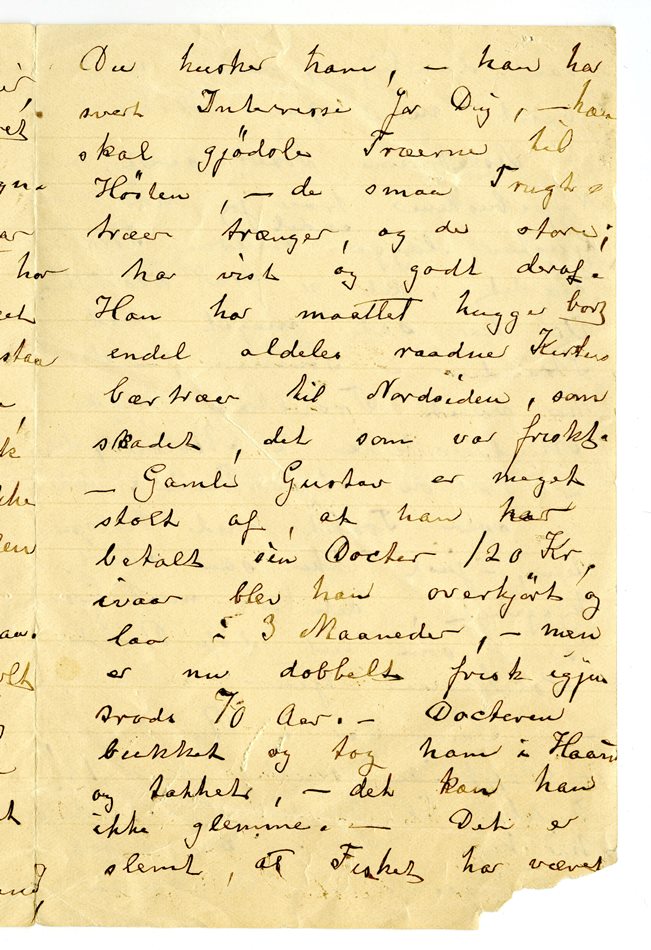 Du husker ham, – han har
svært Interesse for Dig, – han
skal gjødsle Træerne til
Høsten, – de smaa Frugt-
træer trænger, og de store;
har vist og godt deraf.
Han har maattet hugge bort
endel aldeles raadne Kirse
bærtræer til Nordsiden, som
skadet, det som var friskt.
– Gamle Gustav er meget
stolt af, at han har
betalt sin Docter 120 Kr,
ivaar blev han overkjørt og
laa i 3 Maaneder, – men
er nu dobbelt frisk igjen
trods 70 Aar. – Docteren
bukket og tog ham i Haand
og takket, – det kan han
ikke glemme. – Det er
slemt, at Fisket har været